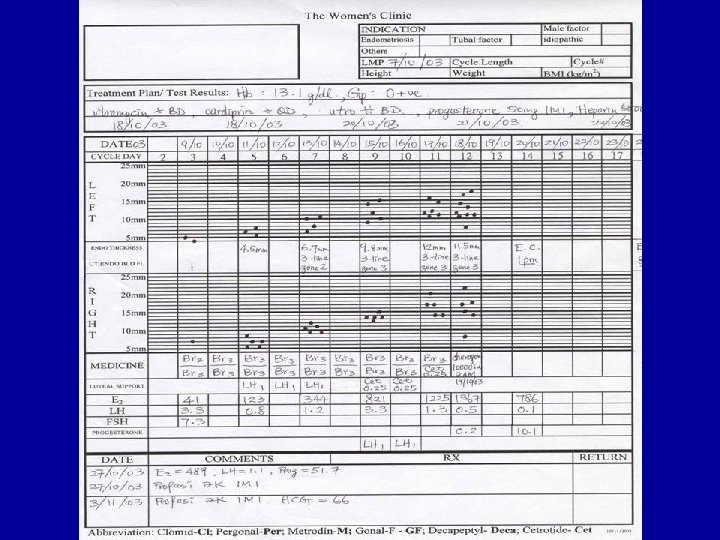 The Women's Clinic
INDICATION Male factor
Endometriosis Tubal factor idiopathic
Others
LMP 7/10/03 Cycle Length Cycle#
Height Weight BMI (kg/m²)
Treatment Plan/ Test Results: Hb : 13.1 g/dl., Gp : O+ve.
BD, cardiprin QD, utro BD, progesterone 50mg IMI, Heparin
18/10/03 18/10/03 20/10/03 21/10/03
DATE 03 9/10 10/10 11/10 12/10 13/10 14/10 15/10 16/10 17/10 18/10 19/10 20/10 21/10 22/10 23/10
CYCLE DAY 2 3 4 5 6 7 8 9 10 11 12 13 14 15 16 17
25mm
LEFT
20mm
15mm
10mm
5mm
ENDO THICKNESS 4.6mm 6.7mm 9.8mm 12mm 11.5mm E.C.
UT.ENDO BLD FL. 3-line 3-line 3-line 3-line 1pm
zone 2 zone 3 zone 3 zone 3
25mm
RIGHT
20mm
15mm
10mm
5mm
MEDICINE Br3 Br3 Br3 Br3 Br3 Br3 Br3 Br3 Br3
Br3 Br3 Br3 Br3 Br3 Br3 Br3 Br3 Cet 0.25 10000iu
LUTEAL SUPPORT LH1 LH1 LH1 Cet 0.25 Cet 0.25 19/10/03
E2 41 123 344 821 1225 1367 786
LH 3.3 0.8 1.2 3.3 1.3 0.5 0.1
FSH 7.3
PROGESTERONE 0.2 10.1
LH1 LH1
DATE COMMENTS RX RETURN
27/10/03 E2 = 489, LH = 1.1, Prog = 51.7
27/10/03 Profasi 2K IMI.
3/11/03 Profasi 2K IMI. HCG = 66
Abbreviation: Clomid-Cl; Pergonal-Per; Metrodin-M; Gonal-F - GF; Decapeptyl- Deca; Cetrotide- Cet